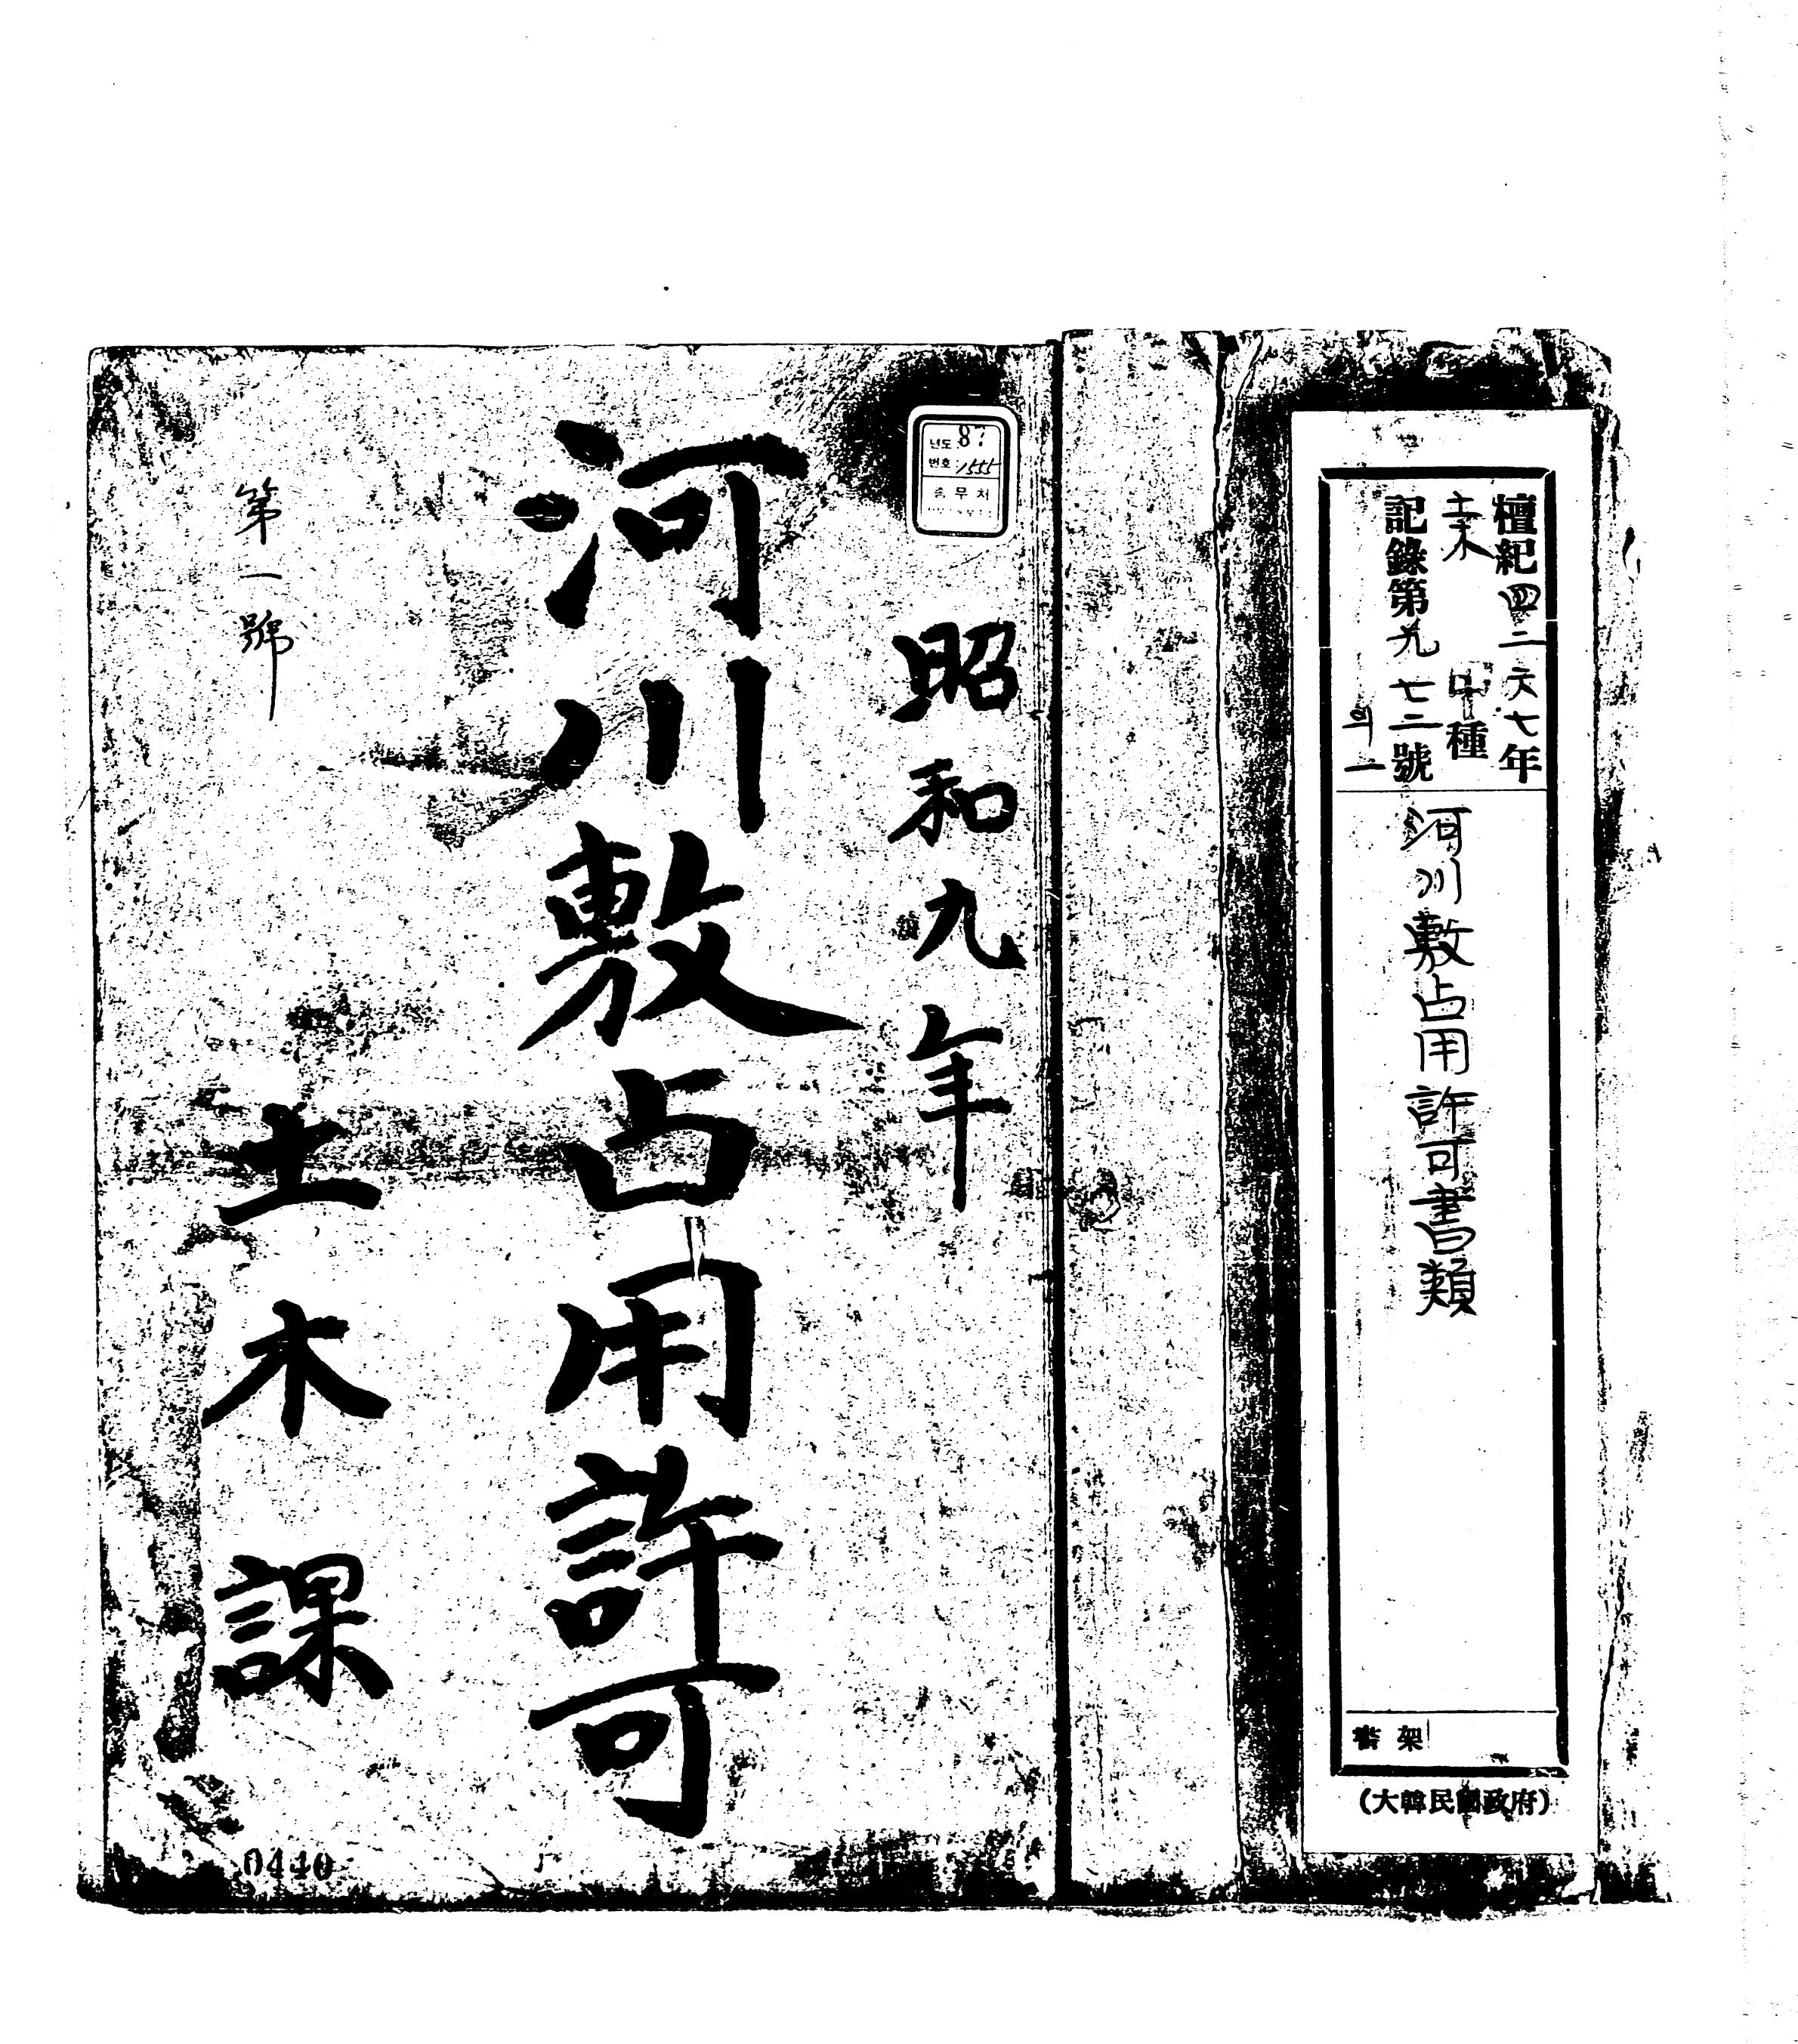 檀紀四二六七年
土木 甲種
記錄第九七二號
의一
河川敷占用許可書類
書架
(大韓民國政府)
년도 87
번호 1555
총무처
昭和九年
河川敷占用許可
第一號
土木課
0440